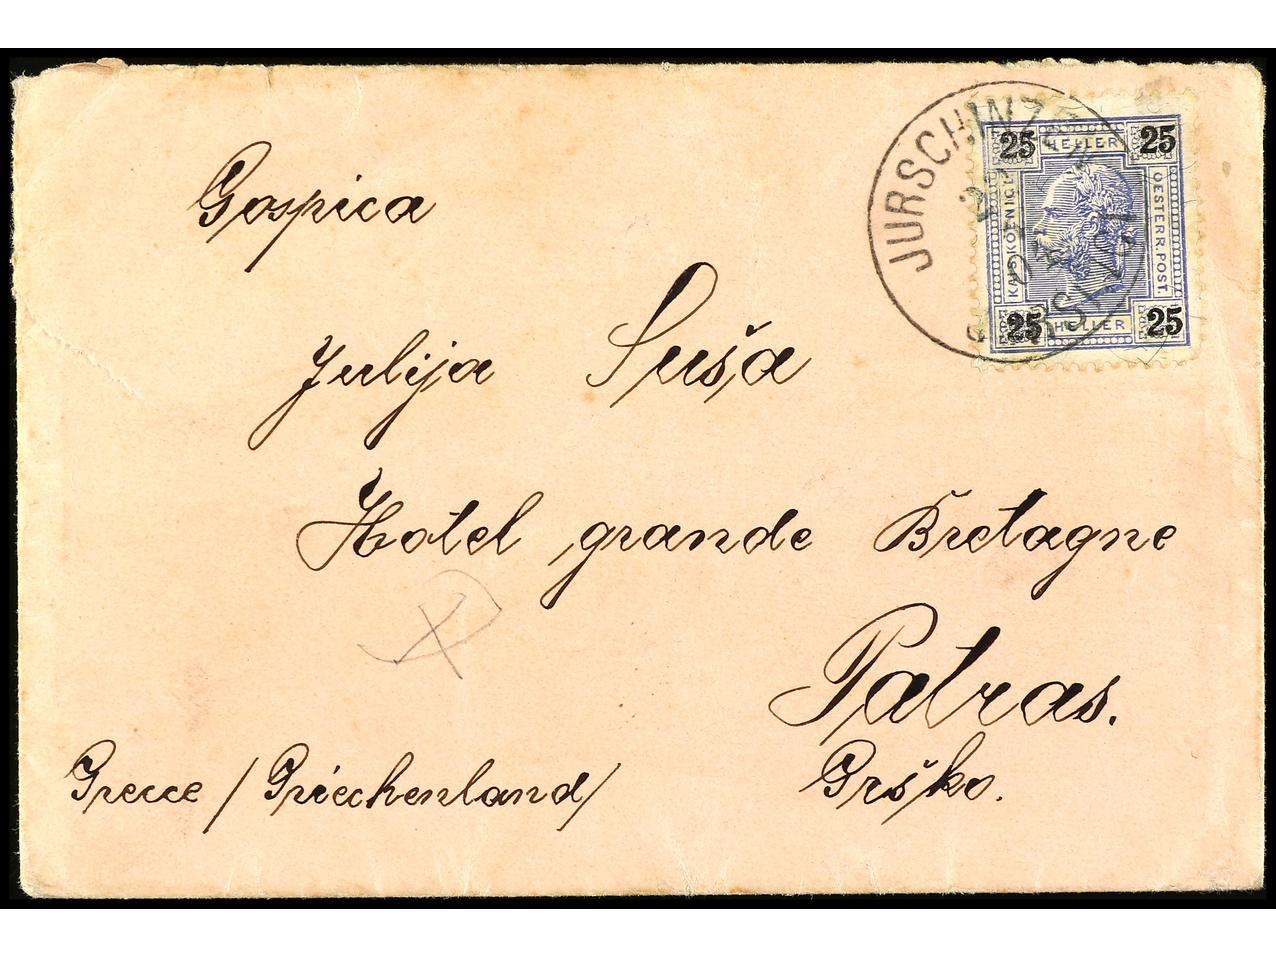 Gospica
Julija Suša
Hotel grande Bretagne
Patras.
Grško.
Grecce / Griechenland/
JURSCHINZEN
25 HELLER 25
KAIS. KOENIGL.
OESTERR. POST.
25 HELLER 25